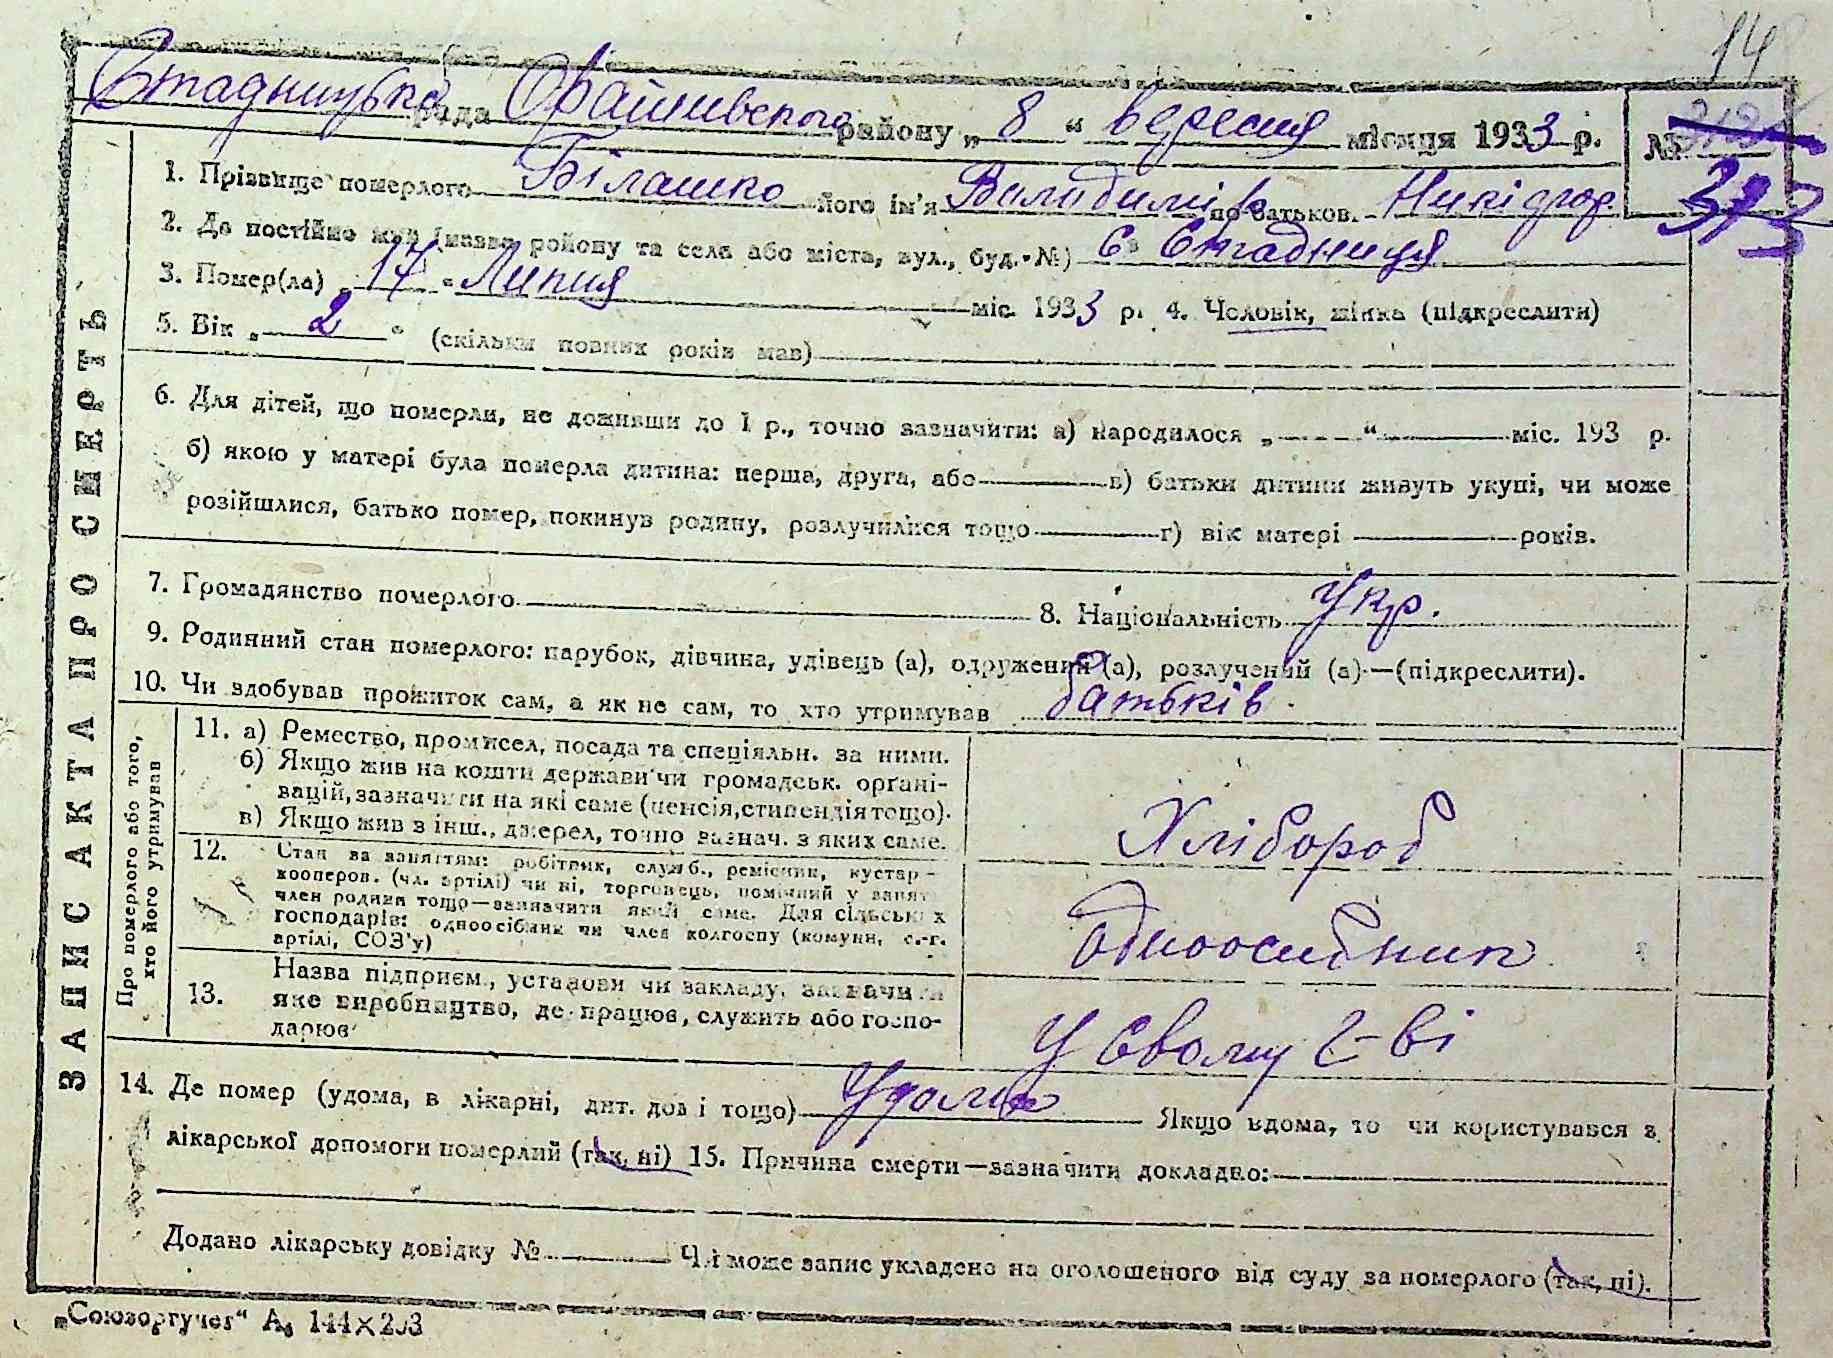 14
Стадницька рада району „ 8 “ вересня місяця 1933 р. №
313
1. Прізвище померлого Білашко його ім'я Володимір по батьков. Никіфор.
2. Де постійно жив (назва району та села або міста, вул., буд. №) с. Стадниця
3. Помер(ла) „ 17 “ Липня міс. 1933 р. 4. Чоловік, жінка (підкреслити)
5. Вік „ 2 “ (скільки повних років мав)
6. Для дітей, що померли, не доживши до 1 р., точно зазначити: а) народилося „ “ міс. 193 р.
б) якою у матері була померла дитина: перша, друга, або в) батьки дитини живуть укупі, чи може
розійшлися, батько помер, покинув родину, розлучилися тощо г) вік матері років.
7. Громадянство померлого 8. Національність Укр.
9. Родинний стан померлого: парубок, дівчина, удівець (а), одружений (а), розлучений (а)—(підкреслити).
10. Чи здобував прожиток сам, а як не сам, то хто утримував батьків.
ЗАПИС АКТА ПРО СМЕРТЬ
Про померлого або того, хто його утримував
11. а) Ремество, промисел, посада та спеціяльн. за ними.
б) Якщо жив на кошти держави чи громадськ. орґані-
зацій, зазначити на які саме (пенсія, стипендія тощо).
в) Якщо жив з інш., джерел, точно зазнач. з яких саме.
Хлібороб
12. Стан за заняттям: робітник, служб., ремісник, кустар-
кооперов. (чл. артілі) чи ні, торговець, помічний у занят.
член родини тощо—зазначити який саме. Для сільських
господарів: одноосібник чи член колгоспу (комуни, с.-г.
артілі, СОЗ'у)
одноосибник
13. Назва підприєм., установи чи закладу, зазначити
яке виробництво, де працює, служить або госпо-
дарює
У Свому г-ві
14. Де помер (удома, в лікарні, дит. домі тощо) Удома Якщо вдома, то чи користувався з
лікарської допомоги померлий (так, ні) 15. Причина смерти—зазначити докладно:
Додано лікарську довідку № Чи може запис укладено на оголошеного від суду за померлого (так, ні).
„Союзоргучет“ А₆ 144×203